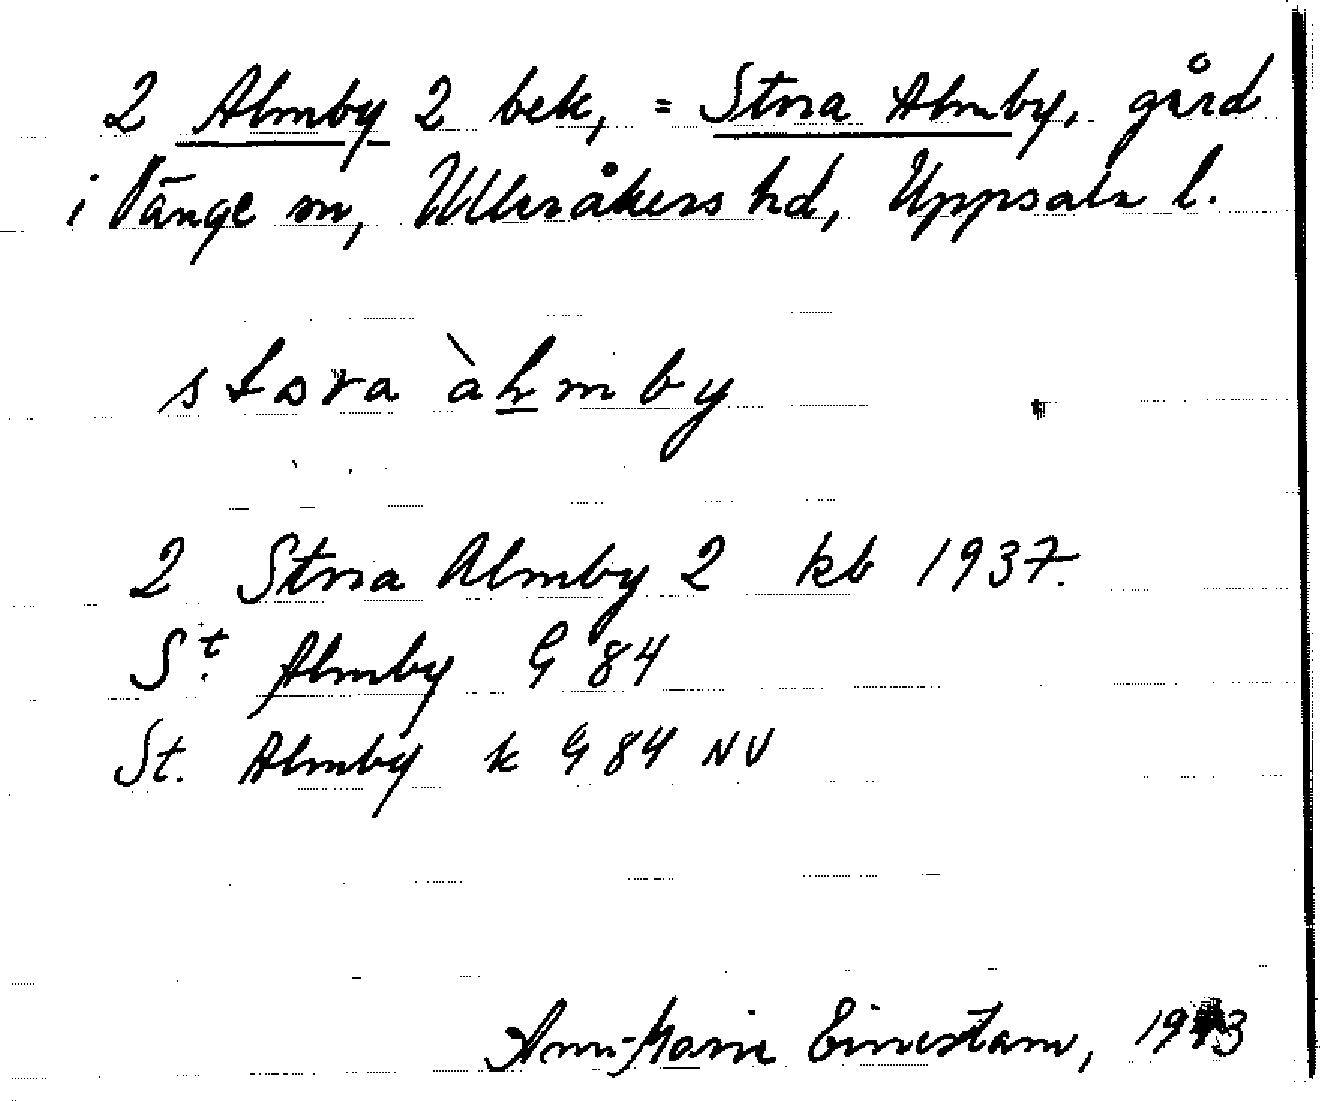 2 Almby 2 bek, = Stora Almby, gård
i Vänge sn, Ulleråkers hd, Uppsala l.
stora àlmby
2 Stora Almby 2 kb 1937.
St. Almby G 84
St. Almby k G 84 NV
Ann-Marie Einestam,